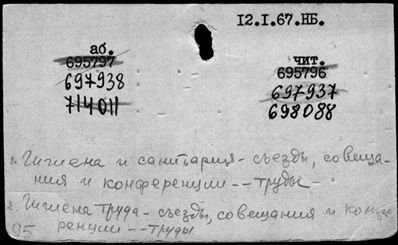 12.I.67.НБ.
аб.
695797
697938
714011
чит.
695796
697937
698088
1. Гигиена и санитария - съезды, совеща-
ния и конференции -- труды
2. Гигиена труда - съезды, совещания и конфе
ренции -- труды
95